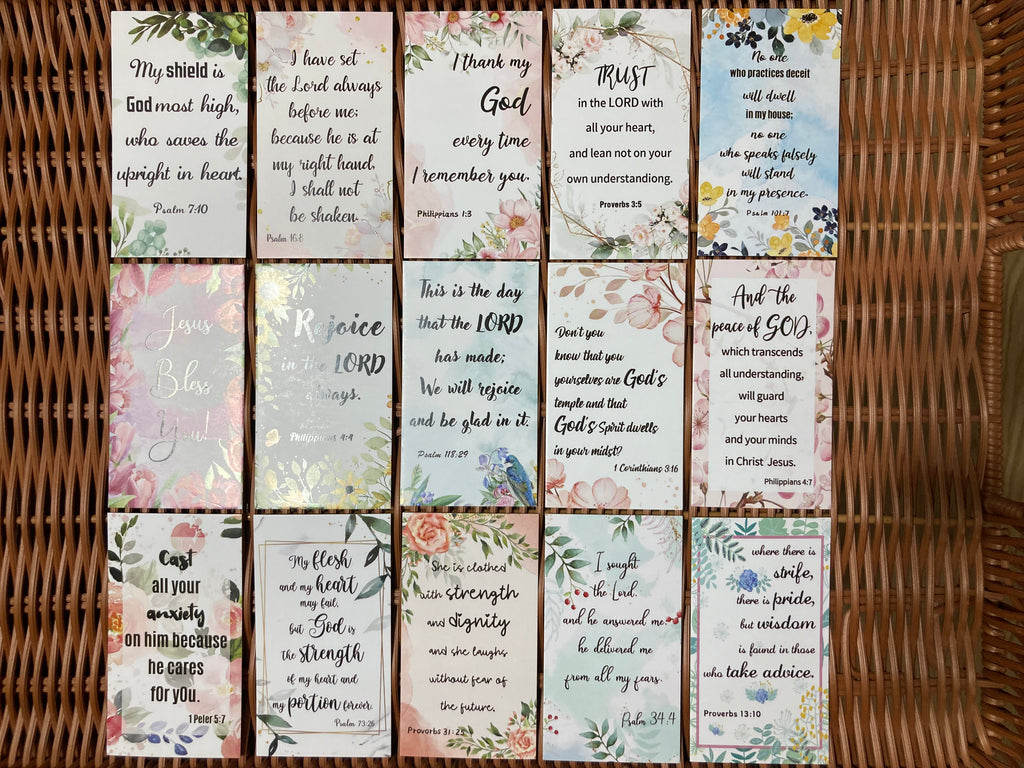 My shield is
God most high,
who saves the
upright in heart.
Psalm 7:10
I have set
the Lord always
before me;
because he is at
my right hand,
I shall not
be shaken.
Psalm 16:8
I thank my
God
every time
I remember you.
Philippians 1:3
TRUST
in the LORD with
all your heart,
and lean not on your
own understandiong.
Proverbs 3:5
No one
who practices deceit
will dwell
in my house;
no one
who speaks falsely
will stand
in my presence.
Psalm 101:7
Jesus
Bless
You!
Rejoice
in the LORD
always.
Philippians 4:4
This is the day
that the LORD
has made;
We will rejoice
and be glad in it.
Psalm 118:29
Don't you
know that you
yourselves are God's
temple and that
God's Spirit dwells
in your midst?
1 Corinthians 3:16
And the
peace of GOD,
which transcends
all understanding,
will guard
your hearts
and your minds
in Christ Jesus.
Philippians 4:7
Cast
all your
anxiety
on him because
he cares
for you.
1 Peler 5:7
My flesh
and my heart
may fail,
but God is
the strength
of my heart and
my portion forever.
Psalm 73:26
She is clothed
with strength
and dignity
and she laughs
without fear of
the future.
Proverbs 31:25
I sought
the Lord,
and he answered me
he delivered me
from all my fears.
Psalm 34:4
where there is
strife,
there is pride,
but wisdom
is found in those
who take advice.
Proverbs 13:10